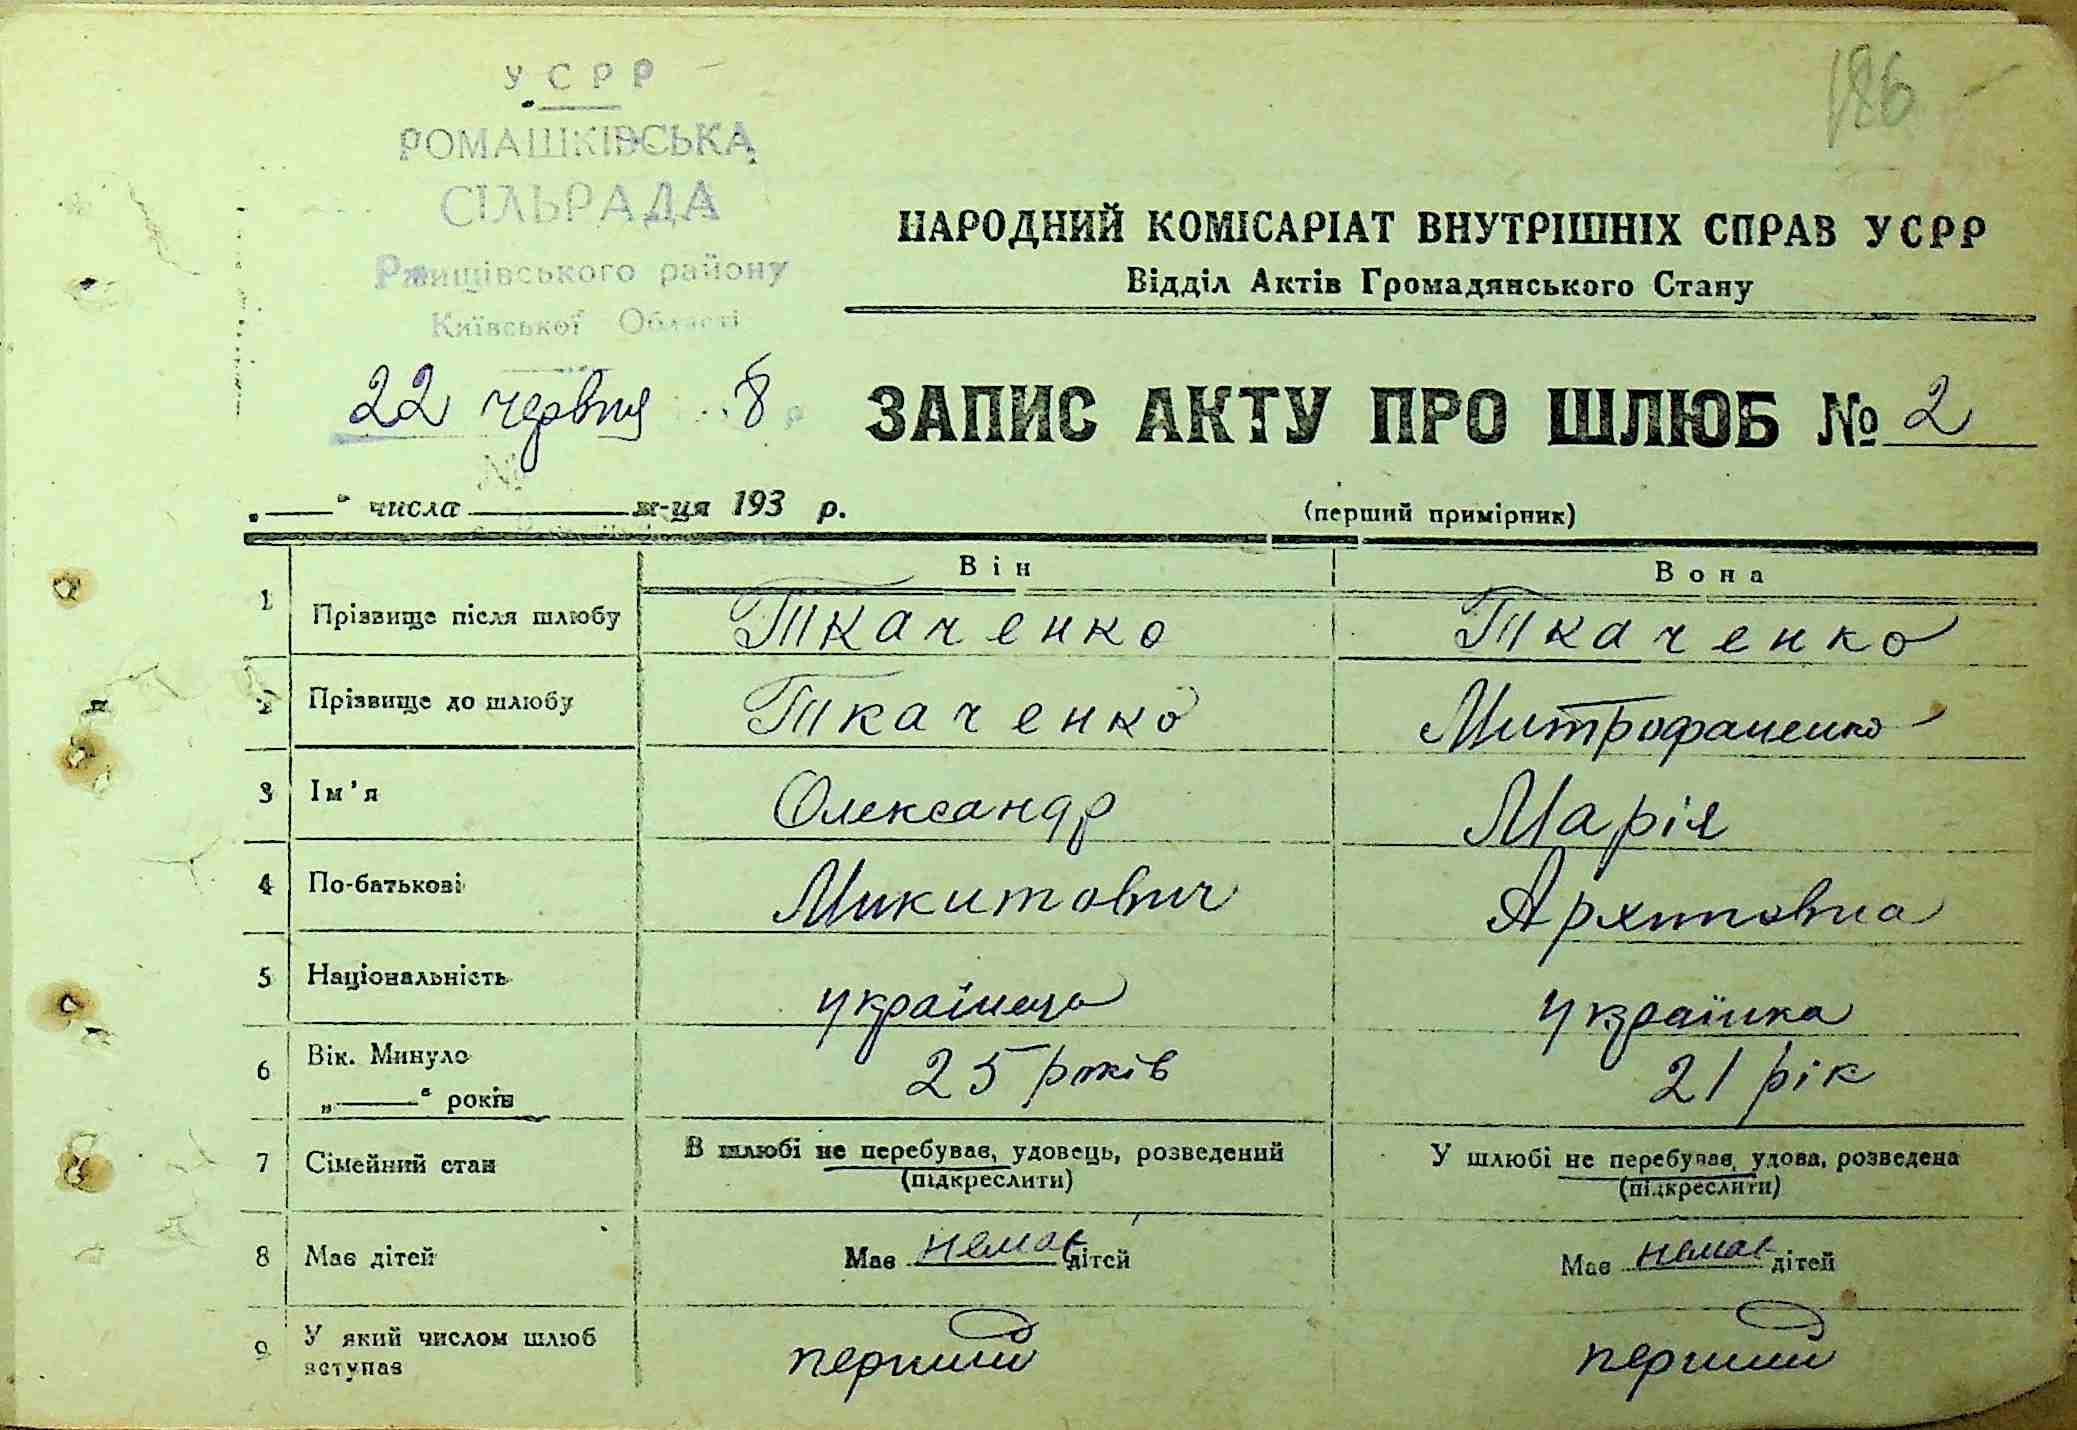 186
УСРР
РОМАШКІВСЬКА
СІЛЬРАДА
Ржищівського району
Київської Області
22 червня 8
№
НАРОДНИЙ КОМІСАРІАТ ВНУТРІШНІХ СПРАВ УСРР
Відділ Актів Громадянського Стану
ЗАПИС АКТУ ПРО ШЛЮБ № 2
„ " числа м-ця 193 р.
(перший примірник)
Він Вона
1 Прізвище після шлюбу Ткаченко Ткаченко
2 Прізвище до шлюбу Ткаченко Митрофаненко
3 Ім'я Олександр Марія
4 По-батькові Микитович Архиповна
5 Національність українець українка
6 Вік. Минуло 25 років 21 рік
„ " років
7 Сімейний стан В шлюбі не перебував, удовець, розведений У шлюбі не перебував, удова, розведена
(підкреслити) (підкреслити)
8 Має дітей Має немає дітей Має немає дітей
9 У який числом шлюб
вступав перший перший